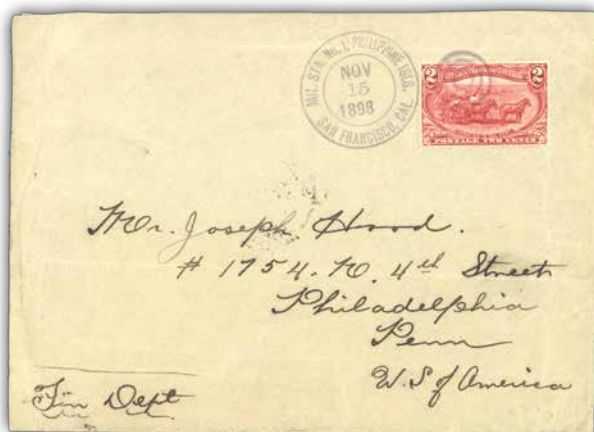 MIL. STA. No. 1, PHILIPPINE ISLS.
NOV
15
1898
SAN FRANCISCO, CAL.
2 2
POSTAGE TWO CENTS
Mr. Joseph Hood.
# 1754. N. 4th Street
Philadelphia
Penn
U.S of America
Dept